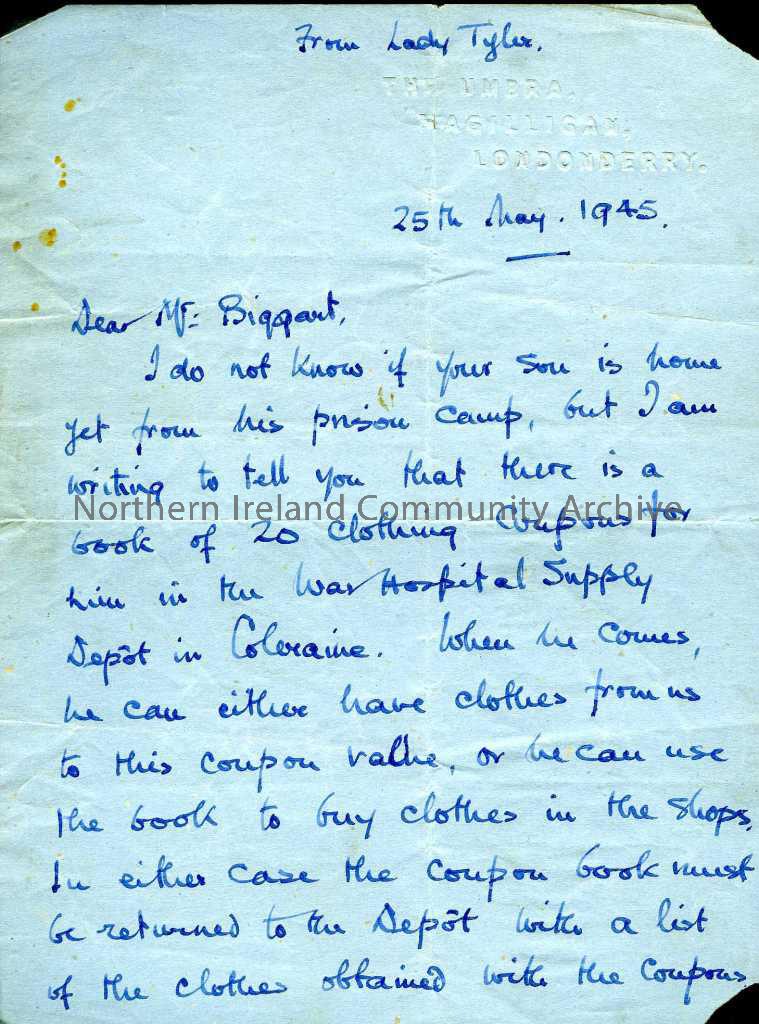 From Lady Tyler.
THE UMBRA,
MAGILLIGAN,
LONDONDERRY.
25th May. 1945.
Dear Mr: Biggart,
I do not know if your son is home
yet from his prison camp, but I am
writing to tell you that there is a
Northern Ireland Community Archive
book of 20 clothing coupons for
him in the War Hospital Supply
Depôt in Coleraine. When he comes,
he can either have clothes from us
to this coupon value, or he can use
the book to buy clothes in the shops.
In either case the coupon book must
be returned to the Depôt with a list
of the clothes obtained with the coupons